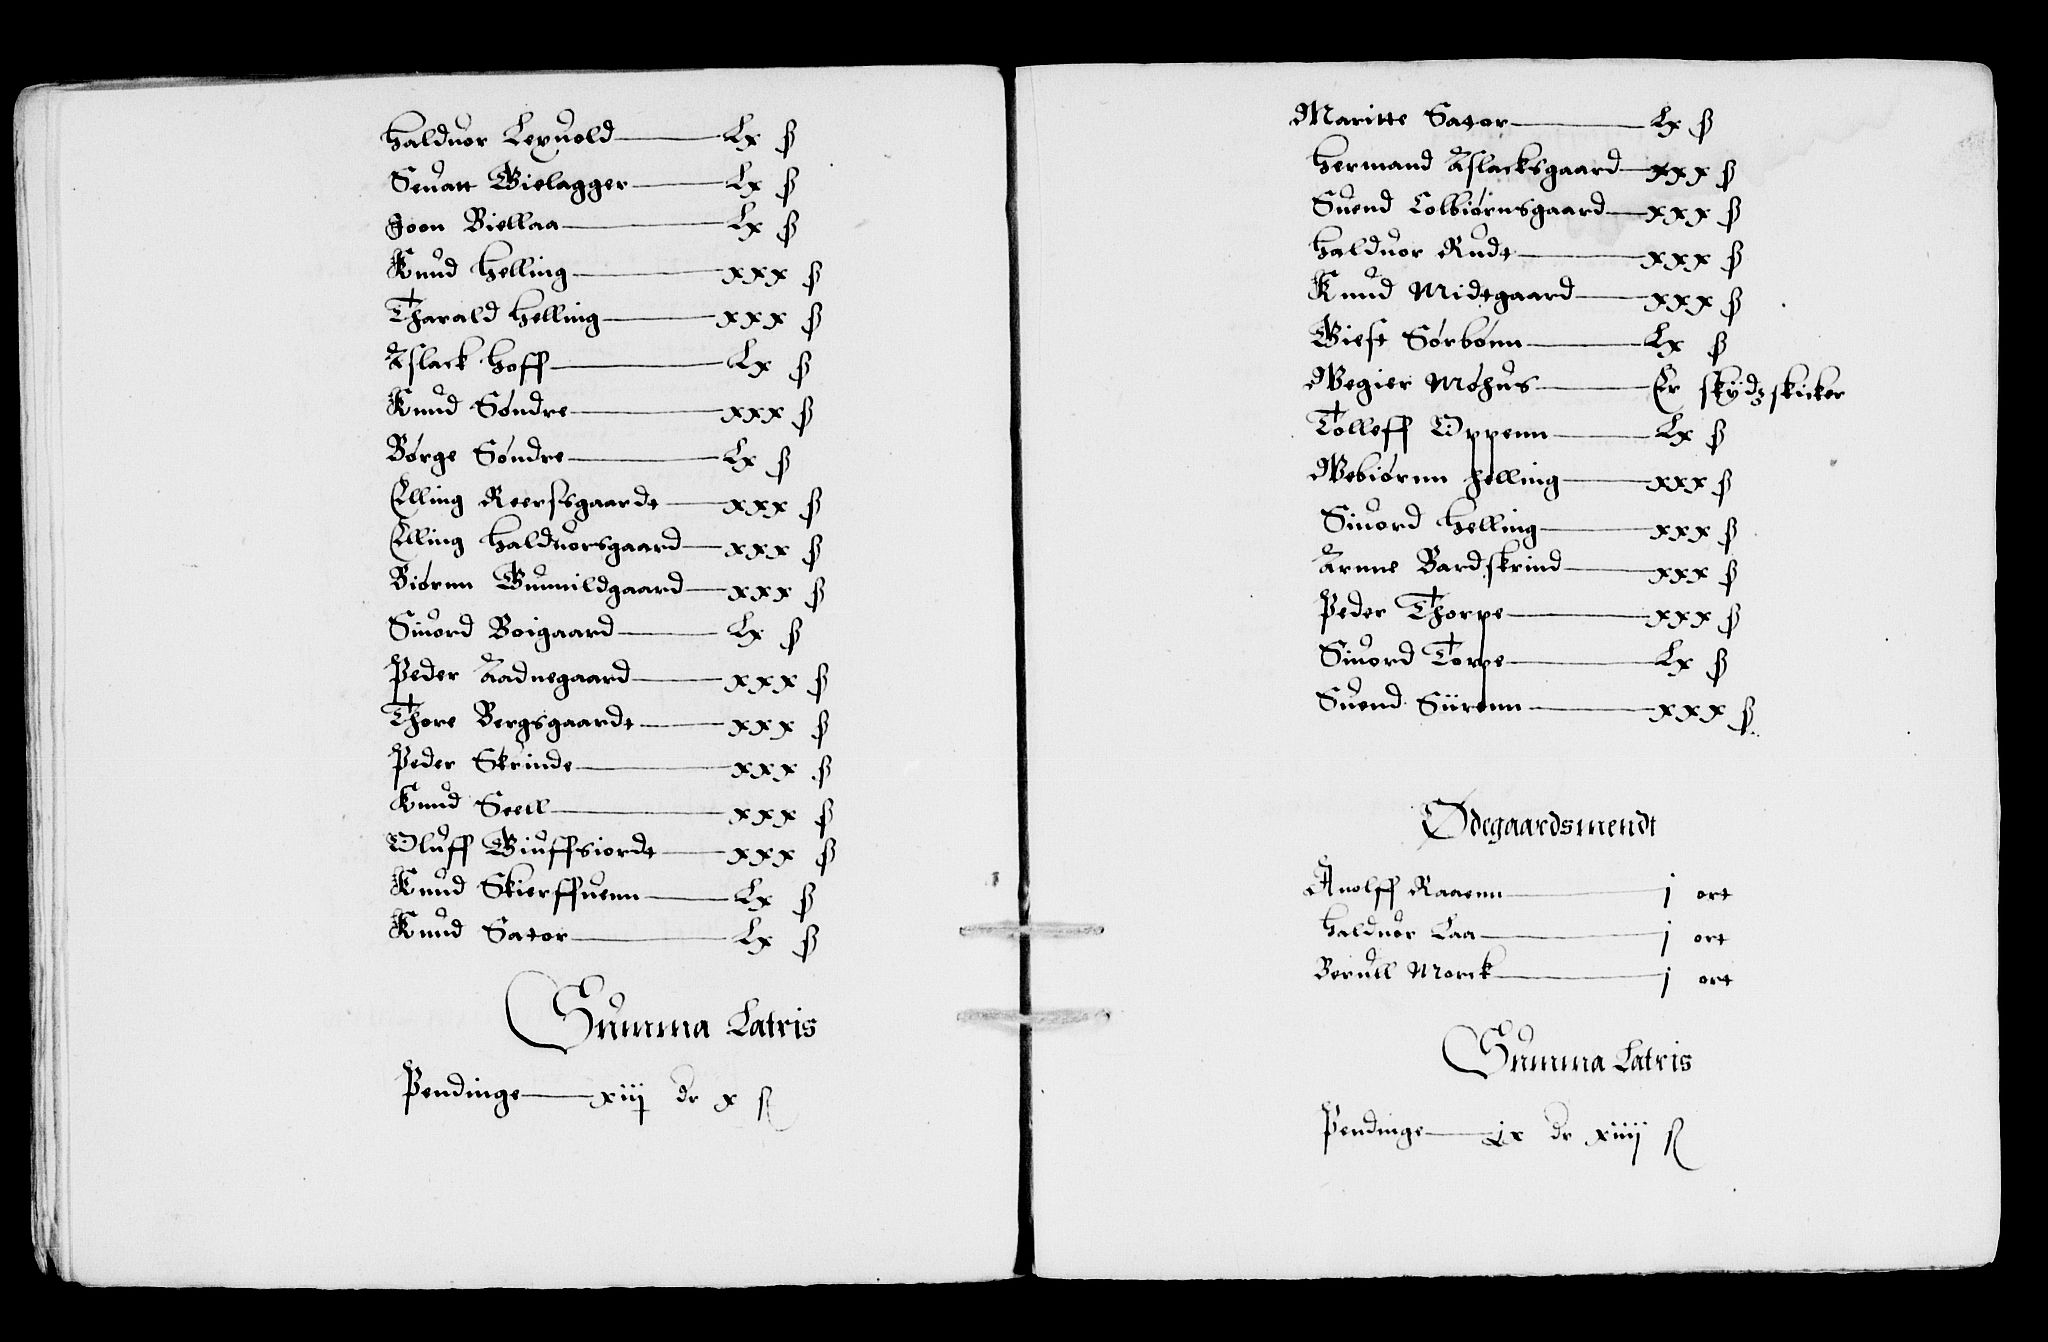 Halduor Lexuold Lx ß
Seuatt Gielagger Lx ß
Joen Biellaa Lx ß
Knud Helling xxx ß
Tharald Helling xxx ß
Aslack Hoff Lx ß
Knud Søndre xxx ß
Børge Søndre Lx ß
Elling Reersgaardt xxx ß
Elling Halduorsgaard xxx ß
Biørnn Gunnildgaard xxx ß
Siuord Boigaard Lx ß
Peder Aadnegaard xxx ß
Thore Bergsgaardt xxx ß
Peder Skrinde xxx ß
Knud Seell xxx ß
Oluff Giuffsiordt xxx ß
Knud Skierffuenn Lx ß
Knud Sator Lx ß
Summa Latris
Pendinge xiij dr x ß
Maritte Sator Lx ß
Hermand Aslacksgaard xxx ß
Suend Colbiørnsgaard xxx ß
Halduor Rudt xxx ß
Knud Midtgaard xxx ß
Giest Sørbønn Lx ß
Wegier Møhus Er skydzskicker
Tolleff Oppenn Lx ß
Webiørnn Helling xxx ß
Siuord Helling xxx ß
Arnne Bardskrind xxx ß
Peder Thorpe xxx ß
Siuord Torpe Lx ß
Suend Siirenn xxx ß
Ødegaardsmendt
Anolff Raaenn j ort
Halduor Laa j ort
Beruell Morck j ort
Summa Latris
Pendinge ix dr xiiij ß